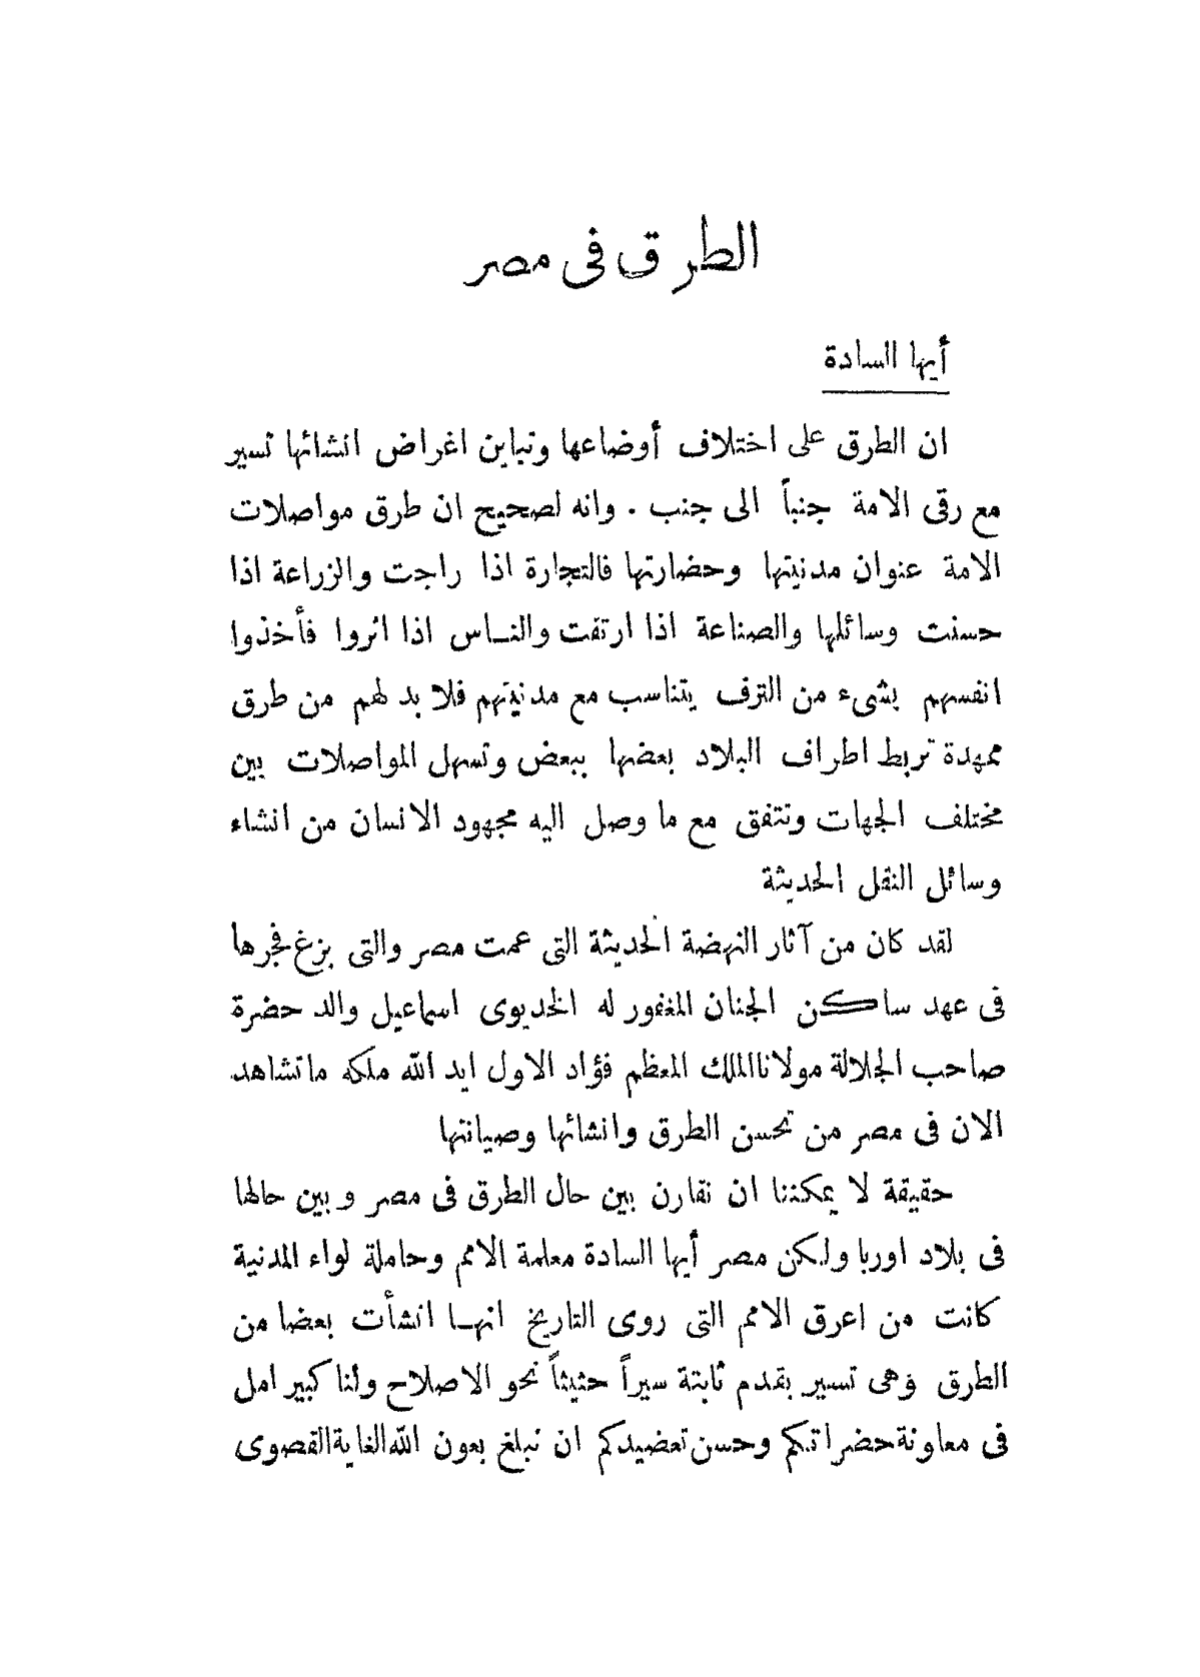 الطرق فى مصر
أيها السادة
ان الطرق على اختلاف أوضاعها وتباين اغراض انشائها تسير
مع رقى الامة جنباً الى جنب . وانه لصحيح ان طرق مواصلات
الامة عنوان مدنيتها وحضارتها فالتجارة اذا راجت والزراعة اذا
حسنت وسائلها والصناعة اذا ارتقت والناس اذا اثروا فأخذوا
انفسهم بشىء من الترف يتناسب مع مدنيتهم فلا بد لهم من طرق
ممهدة تربط اطراف البلاد بعضها ببعض وتسهل المواصلات بين
مختلف الجهات وتتفق مع ما وصل اليه مجهود الانسان من انشاء
وسائل النقل الحديثة
لقد كان من آثار النهضة الحديثة التى عمت مصر والتى بزغ فجرها
فى عهد ساكن الجنان المغفور له الخديوى اسماعيل والد حضرة
صاحب الجلالة مولانا الملك المعظم فؤاد الاول ايد الله ملكه ما تشاهد
الان فى مصر من تحسن الطرق وانشائها وصيانتها
حقيقة لا يمكننا ان نقارن بين حال الطرق فى مصر وبين حالها
فى بلاد اوربا ولكن مصر أيها السادة معلمة الامم وحاملة لواء المدنية
كانت من اعرق الامم التى روى التاريخ انها انشأت بعضا من
الطرق وهى تسير بقدم ثابتة سيراً حثيثاً نحو الاصلاح ولنا كبير امل
فى معاونة حضراتكم وحسن تعضيدكم ان نبلغ بعون الله الغاية القصوى